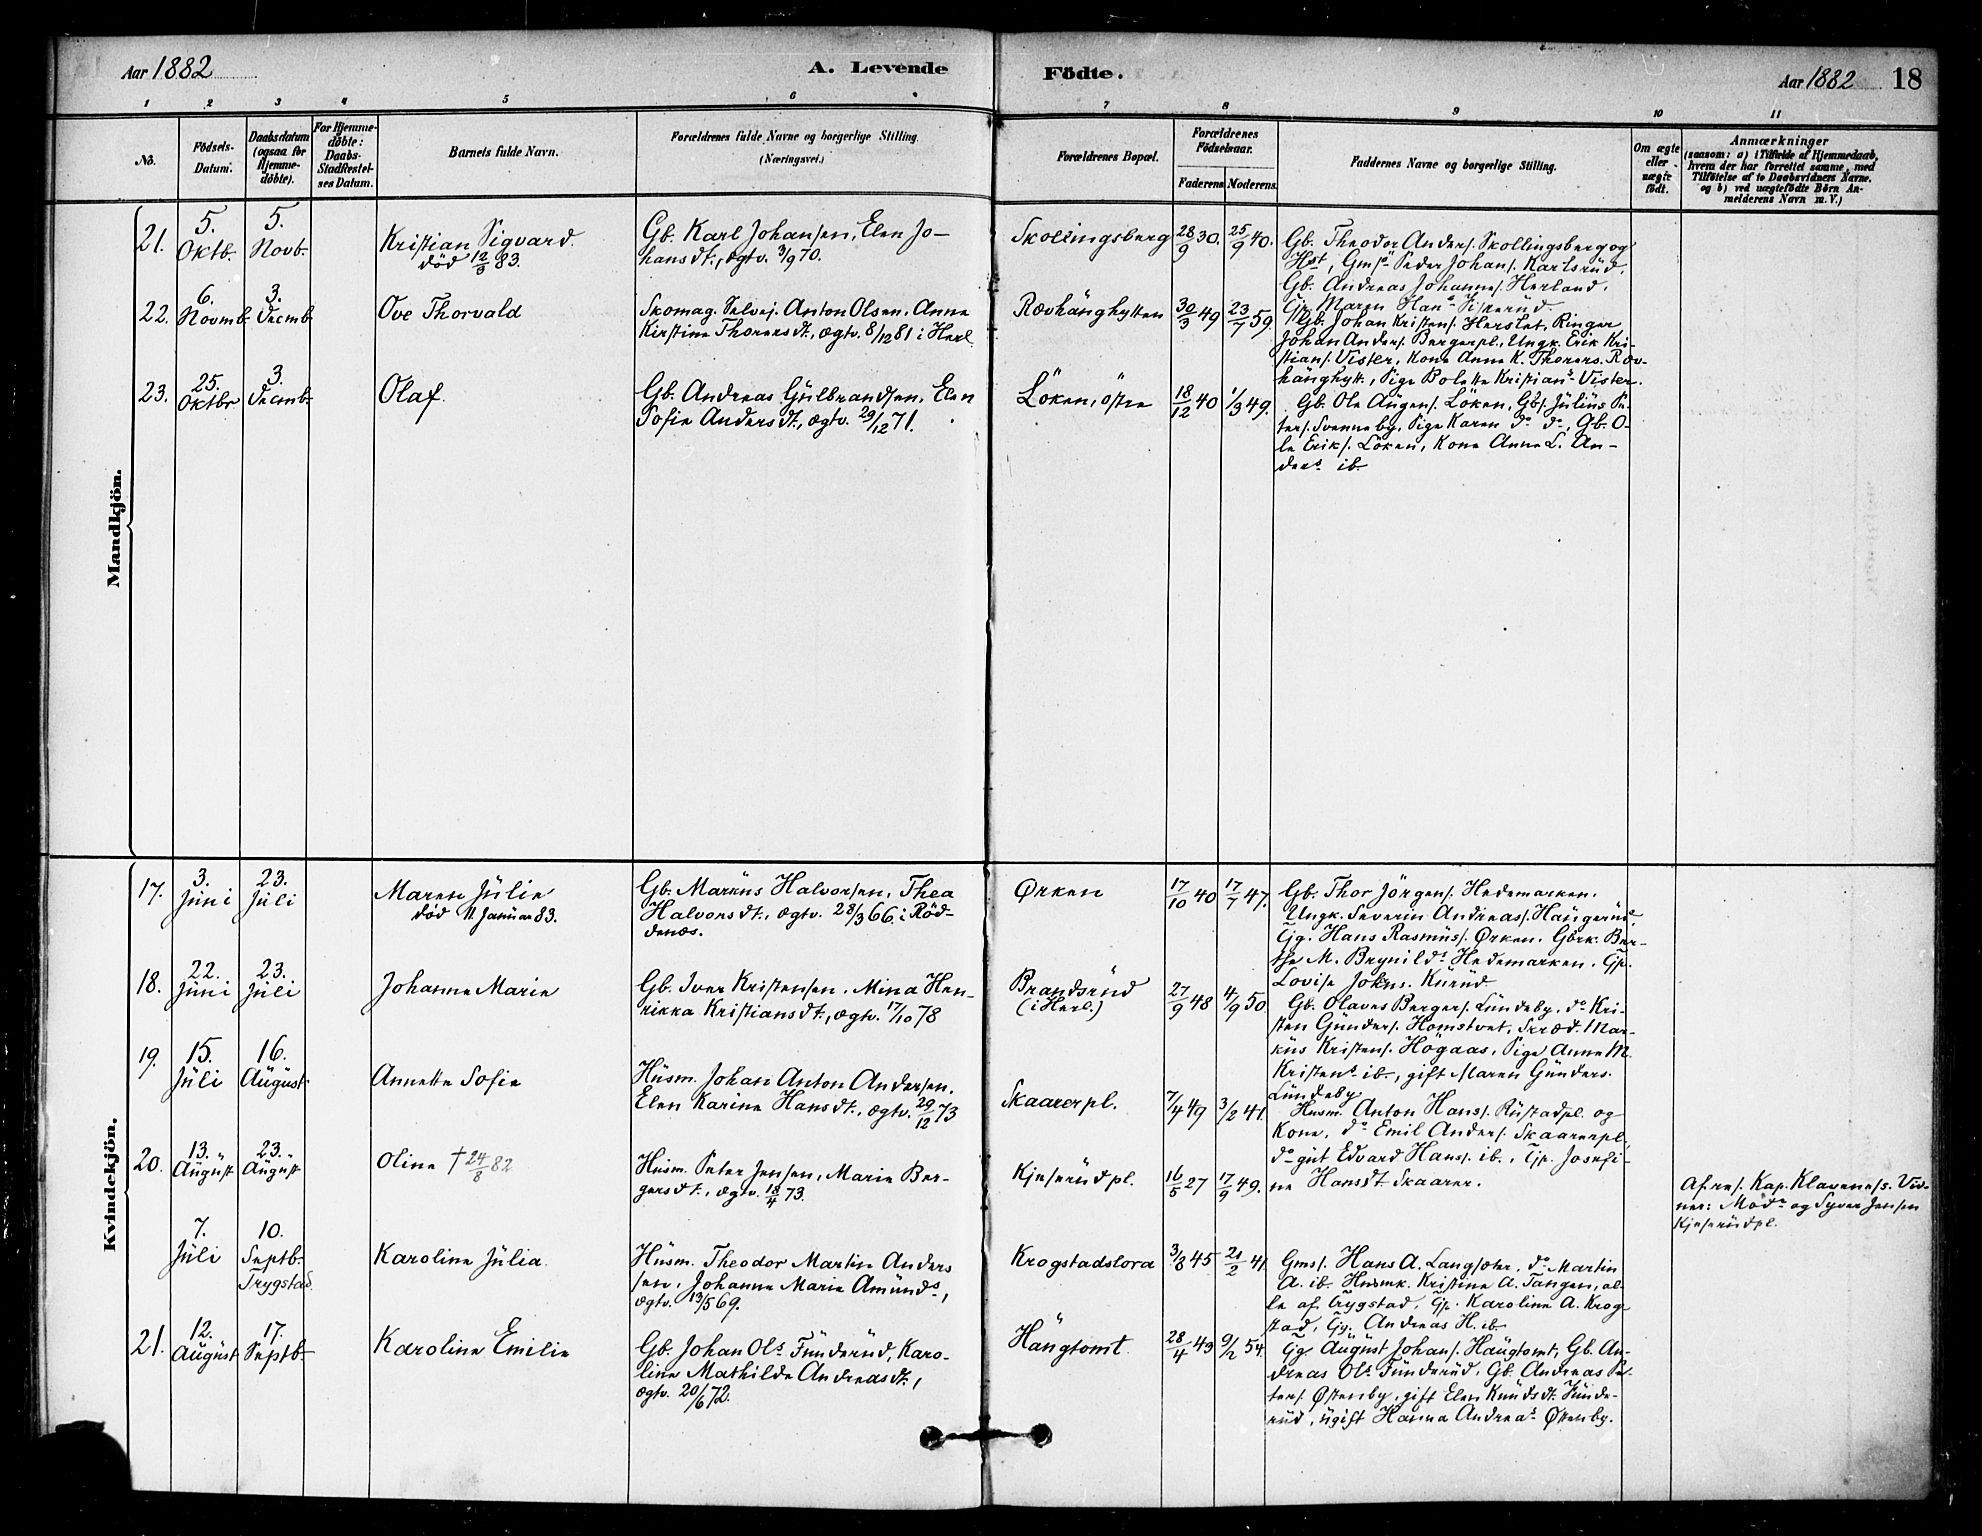 Aar 1882
A. Levende
Födte.
Aar 1882
18
1 2 3 4 5 6 7 8 9 10 11
No.
Födsels-
Datum.
Daabsdatum
(ogsaa for
Hjemme-
döbte).
For Hjemme-
döbte:
Daabs-
Stadfæstel-
ses Datum.
Barnets fulde Navn.
Forældrenes fulde Navne og borgerlige Stilling.
(Næringsvei.)
Forældrenes Bopæl.
Forældrenes
Födselsaar.
Faderens
Moderens.
Faddernes Navne og borgerlige Stilling.
Om ægte
eller
uægte
födt.
Anmærkninger
(saasom: a) i Tilfælde af Hjemmedaab,
hvem der har forrettet samme, med
Tilföielse af to Daabsvidners Navne,
og b) ved uægtefödte Börn An-
melderens Navn m. V.)
Mandkjön.
21.
5.
Oktb.
5.
Novb.
Kristian Sigvard.
död 12/3 83.
Gb. Karl Johansen, Elen Jo-
hansdt., ægtv. 3/9 70.
Skollingsberg
28/9 30.
25/9 40.
Gb. Theodor Anders. Skollingsberg og
Hst, Gms Peder Johans. Karlsrud,
Gb. Andreas Johannes. Herland.
Gp. Maren Hans
22.
6.
Novmb.
3.
Decmb.
Ove Thorvald
Skomag. Selvej. Anton Olsen, Anne
Kirstine Thorersdt., ægtv. 8/12 81 i Herl.
Rævhänghytten
30/3 49
23/7 59.
Gb. Johan Kristens. Herslet, Ringer
Johan Anders. Bergerpl., Ungk. Erik Kri-
stians. Vister, Kone Anne K. Thorers. Ræv-
hänghytt., Pige Bolette Kristians Vister.
23.
25.
Oktbr
3.
Decmb.
Olaf.
Gb. Andreas Gulbrandsen, Elen
Sofie Andersdt., ægtv. 29/12 71.
Löken, östre
18/12 40
1/3 49.
Gb. Ole Augens. Löken, Gbs. Julius Pe-
ters. Svenneby, Pige Karen do do, Gb. O-
le Eriks. Löken, Kone Anne L. An-
ders ib.
Kvindekjön.
17.
3.
Juni
23.
Juli
Maren Julie
död 11 Januar 83.
Gb. Markus Halvorsen, Thea
Halvorsdt., ægtv. 28/3 66. i Röd-
denæs.
Ørken
17/10 40
17/7 47.
Gb. Thor Jörgens. Hedemarken.
Ungk. Severin Andreas. Haugerud,
Gg. Hans Rasmus. Ørken. Gårk. Ber-
the M. Brynilds Hedemarken. Gp.
Lovise Johns. Kurud
18.
22.
Juni
23.
Juli
Johanne Marie
Gb. Iver Kristensen, Mina Hen-
rikka Kristiansdt., ægtv. 17/10 78
Brandsrud
(i Herl.)
27/9 48
4/9 50
Gb. Olaves Bergers. Lundeby, do Kri-
sten Gunders. Homstvet, Skræd. Mar-
kus Kristens. Högaas, Pige Anne M.
Kristens ib., gift Maren Gunders.
Lundeby
19.
15.
Juli
16.
August.
Annette Sofie
Husm. Johan Anton Andersen.
Elen Karine Hansdt., ægtv. 29/12 73
Skaarerpl.
7/4 49
3/2 41.
Husm. Anton Hans. Rustadpl. og
Kone, do Emil Anders. Skaarerpl.,
do gut Edvard Hans. ib., Gp. Josefi-
ne Hansdt Skaarer.
20.
13.
August
23.
August
Oline † 24/8 82
Husm. Peter Jensen, Marie Ber-
gersdt., ægtv. 18/4 73.
Kjeserudpl.
16/5 27
17/9 49.
Af res. Kap. Klavenes. Vid-
ner: Modn og Syver Jensen
Kjeserudpl.
7.
Juli
10.
Septb.
Trygstad.
Karoline Julia.
Husm. Theodor Martin Anders
sen, Johanne Marie Amunds,
ægtv. 13/5 69.
Krogstadslora
3/8 45
21/2 41.
Gms. Hans A. Langsæter, do Martin
A. ib. Husmk. Kristine A. Tangen, al-
le af Trygstad, Gp. Karoline A. Krog-
stad, Gg. Andreas H. ib.
21.
12.
August
17.
Septb.
Karoline Emilie
Gb. Johan Ols. Funderud, Karo-
line Mathilde Andreasdt.,
ægtv. 20/6 72.
Haugtomt.
28/4 43
9/2 54.
Gg August Johans. Haugtomt, Gb. An-
dreas Ols. Funderud, Gb. Andreas Pe-
ters. Østenby, gift Elen Knudsdt. Funde-
rud, ugift Hanna Andreas Østenby.